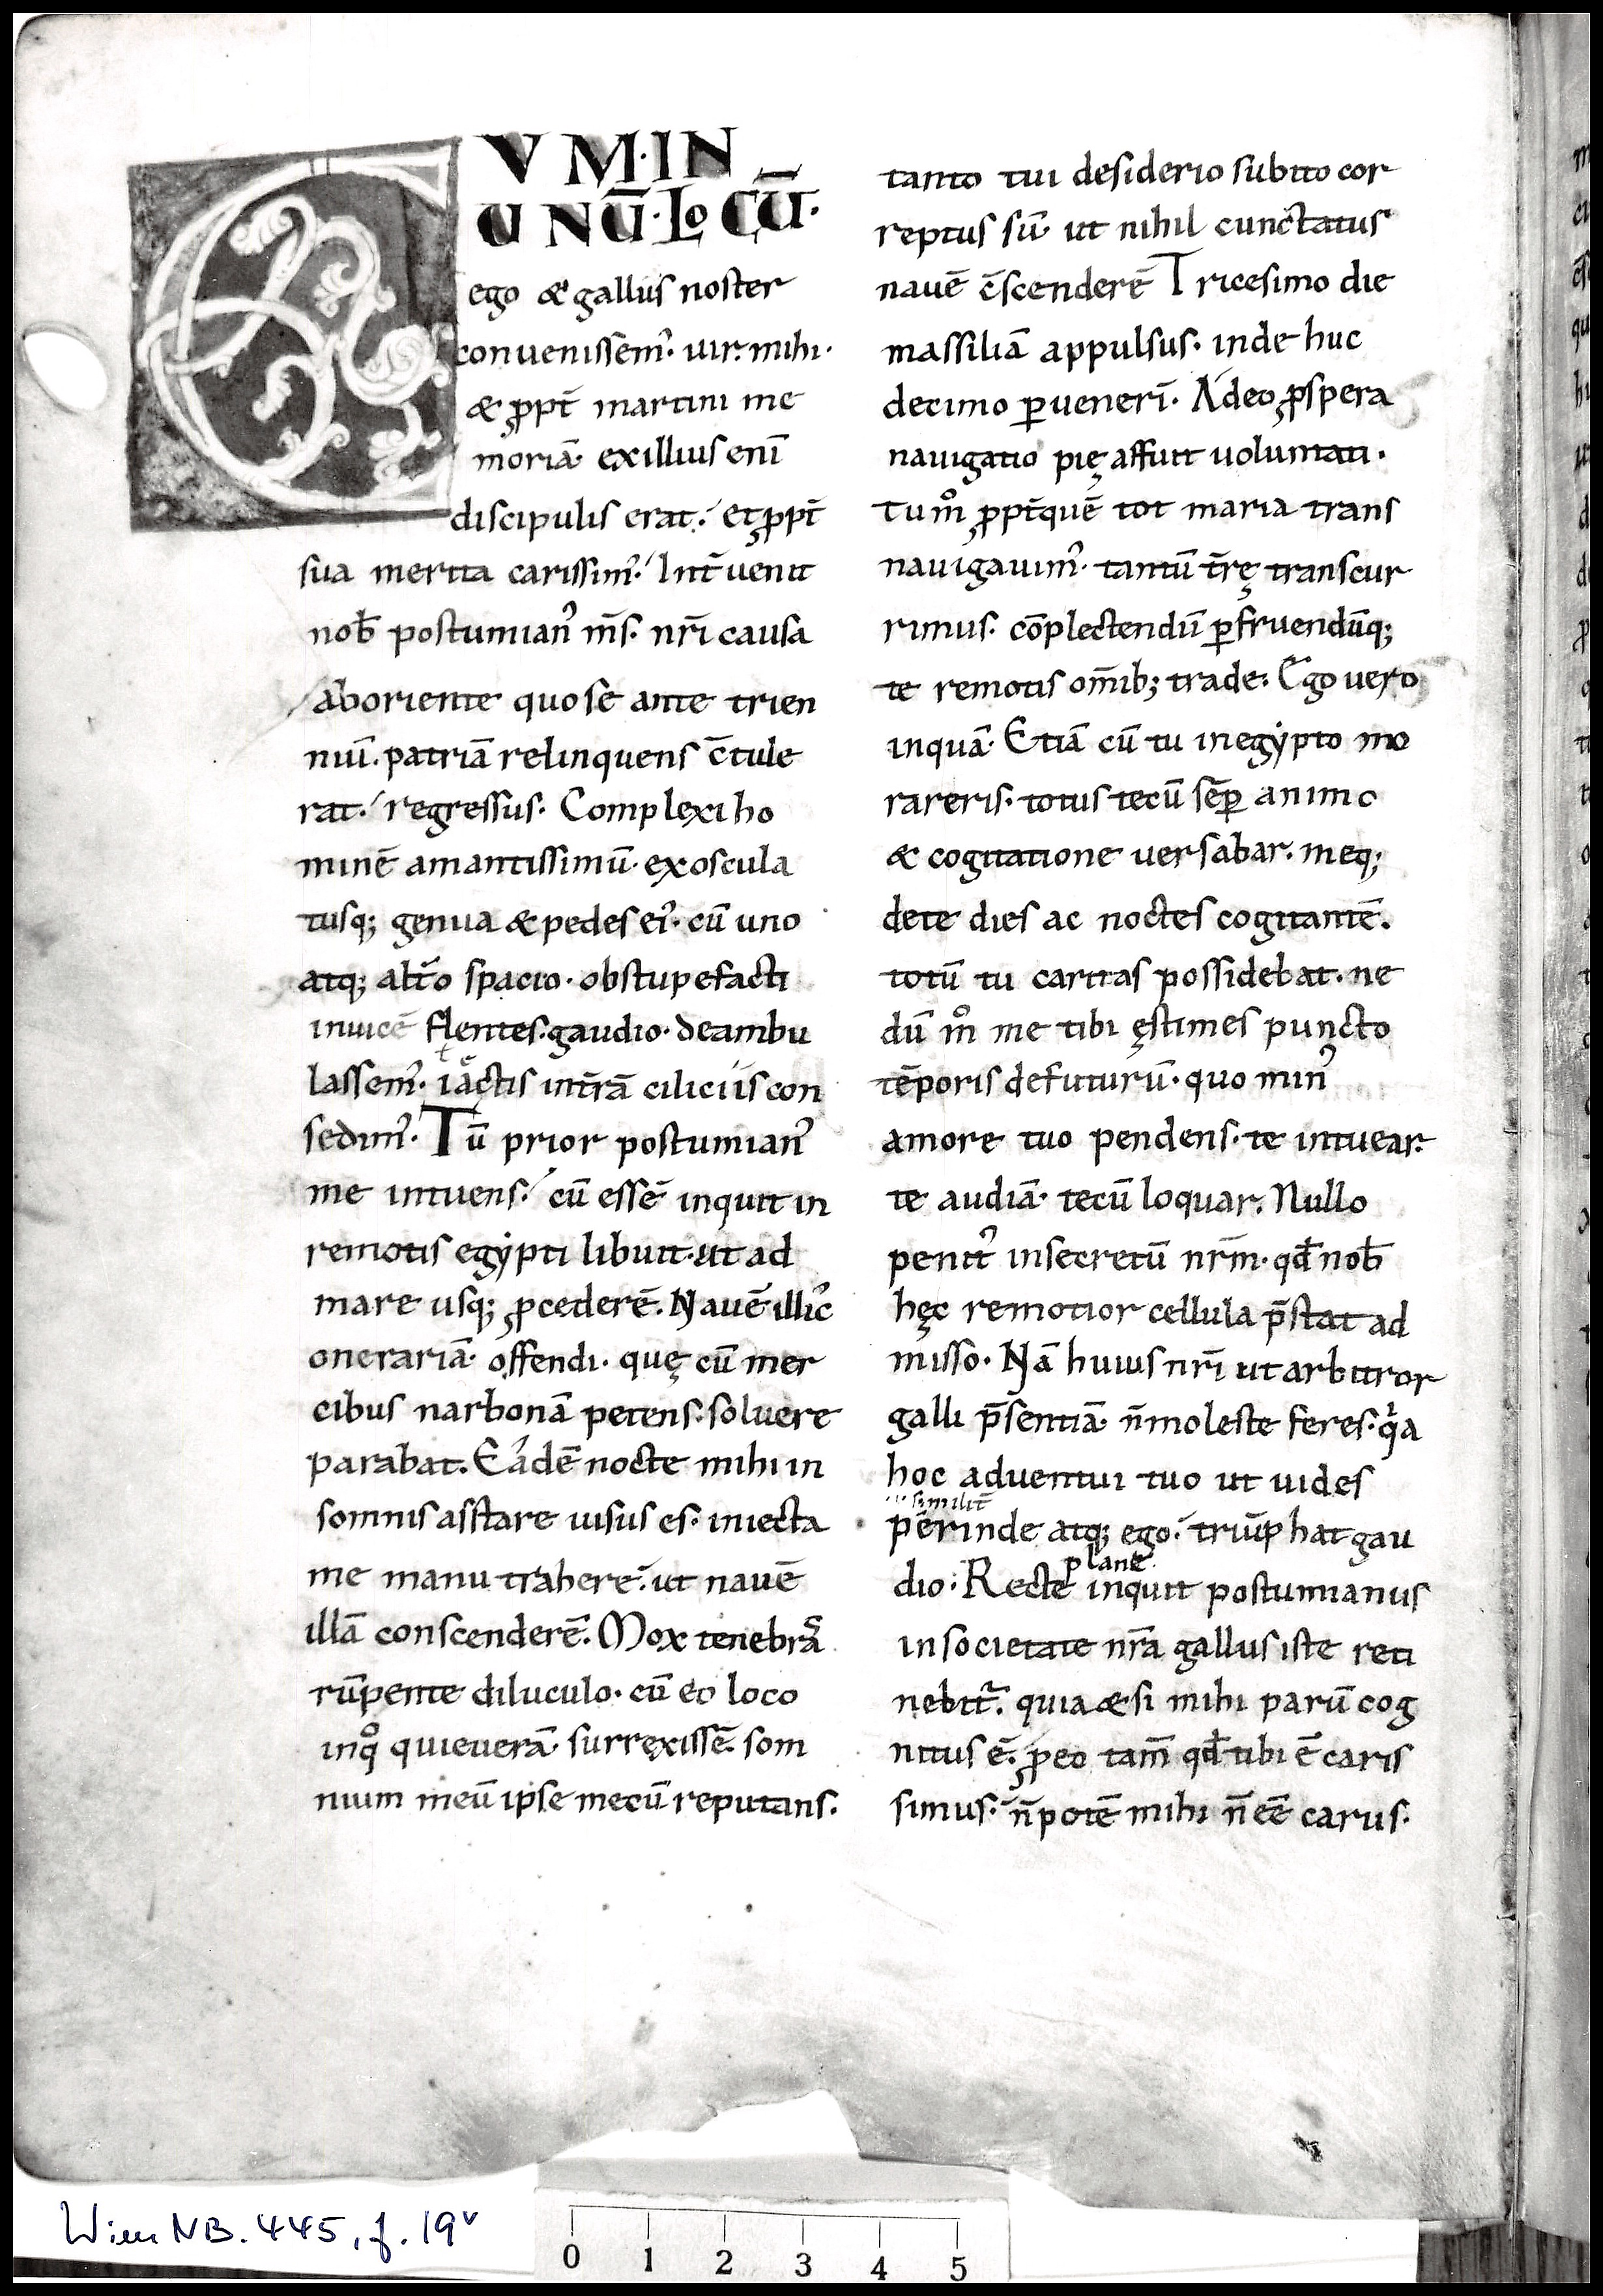 CVM·IN
UNŪ·LOCŪ·
ego & gallus noster
conuenissem᾽· uir· mihi·
& ꝓpt̄ martini me
moriā· ex illius enī
discipulis erat·́ et ꝓpt̄
sua merita carissim᾽·́ Int̄uenit
nob̄ postumian᾽ m̄s· nr̄i causa
ab oriente quo se ante trien
niū· patriā relinquens c̄tule
rat·́ regressus· Complexi ho
minē amantissimū· exoscula
tusq; genua & pedes ei᾽· cū uno
atq; alt̄o spacio· obstupefacti
inuicē flentes· gaudio· deambu
lassem᾽· iactis int̄rā ciliciis con
sedim᾽· Tū prior postumian᾽
me intuens·́ cū essē inquit in
remotis egẏpti libuit· ut ad
mare usq; ꝓcederē. Nauē illic
onerariā· offendi· quę cū mer
cibus narbonā petens· soluere
parabat. Eadē nocte mihi in
somnis asstare uisus es· iniecta
me manu trahere·́ ut nauē
illā conscenderē. Mox tenebrā
rūpente diluculo· cū eo loco
inqͦ quieuerā· surrexissē· som
nium meū ipse mecū reputans.
tanto tui desiderio subito cor
reptus sū· ut nihil cunctatus
nauē c̄scenderē Tricesimo die
massiliā appulsus· inde huc
decimo ꝑuenerī· Adeo ꝓspera
nauigatio pię affuit uoluntati·
Tu mͦ ꝓpt̄ quē tot maria trans
nauigauim᾽· tantū t̄rę transcur
rimus· cōplectendū ꝑfruendūq;
te remotis om̄ib; trade· Ego uero
inquā· Etiā cū tu in egẏpto mo
rareris· totus tecū sēꝑ animo
& cogitatione uersabar· meq;
de te dies ac noctes cogitantē.
totū tu caritas possidebat· ne
dū mͦ me tibi ęstimes puncto
tēporis defuturū· quo min᾽
amore tuo pendens· te intuear·
te audiā· tecū loquar· Nullo
penit᾽ in secretū nr̄m· qd̄ nob̄
hęc remotior cellula p̄stat ad
misso· Nā huius nr̄i ut arbitror
galli p̄sentiā· n̄ moleste feres· qͥa
hoc aduentui tuo ut uides
similit̄
perinde atq; ego·́ triūphat gau
plane
dio· Recte inquit postumianus
in societate nr̄a gallus iste reti
nebit᷒· quia & si mihi parū cog
nitus ē· ꝓ eo tam̄ qd̄ tibi ē caris
simus·́ n̄ potē mihi n̄ eē carus·
Wien NB. 445, f. 19ᵛ
0 1 2 3 4 5